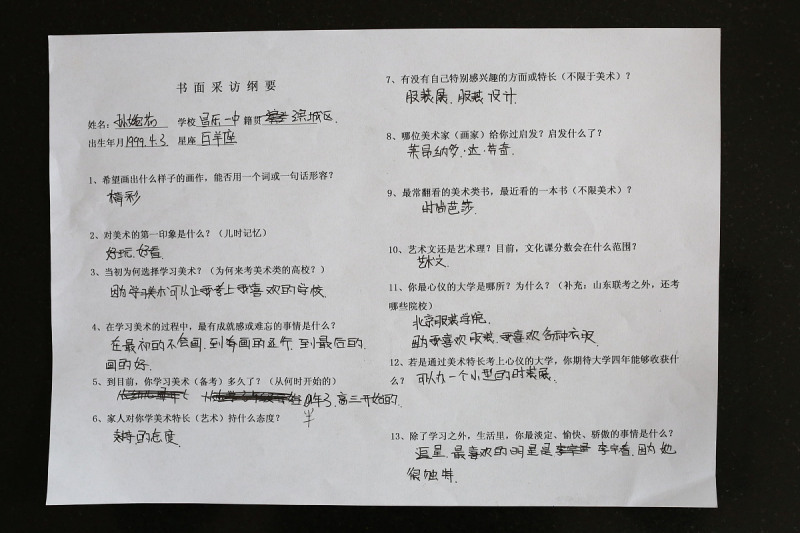 书面采访纲要
姓名：孙 学校 昌乐一中 籍贯 滨城区
出生年月 1999.4.3. 星座 白羊座
1、希望画出什么样子的画作，能否用一个词或一句话形容？
精彩
2、对美术的第一印象是什么？（儿时记忆）
好玩．好看
3、当初为何选择学习美术？（为何来考美术类的高校？）
因为学习美术可以让我考上我喜欢的学校．
4、在学习美术的过程中，最有成就感或难忘的事情是什么？
在最初的不会画．到考画的还行．到最后的．
画的好．
5、到目前，你学习美术（备考）多久了？（从何时开始的）
半年了，高三开始的．
6、家人对你学美术特长（艺术）持什么态度？
支持的态度．
7、有没有自己特别感兴趣的方面或特长（不限于美术）？
服装展．服装设计．
8、哪位美术家（画家）给你过启发？启发什么了？
莱昂纳多·达·芬奇．
9、最常翻看的美术类书，最近看的一本书（不限美术）？
时尚芭莎．
10、艺术文还是艺术理？目前，文化课分数会在什么范围？
艺术文．
11、你最心仪的大学是哪所？为什么？（补充：山东联考之外，还考
哪些院校）
北京服装学院．
因为我喜欢服装．我喜欢各种衣服
12、若是通过美术特长考上心仪的大学，你期待大学四年能够收获什
么？ 可以办一个小型的时装展．
13、除了学习之外，生活里，你最淡定、愉快、骄傲的事情是什么？
追星．最喜欢的明星是 李宇春．因为她
很独特．